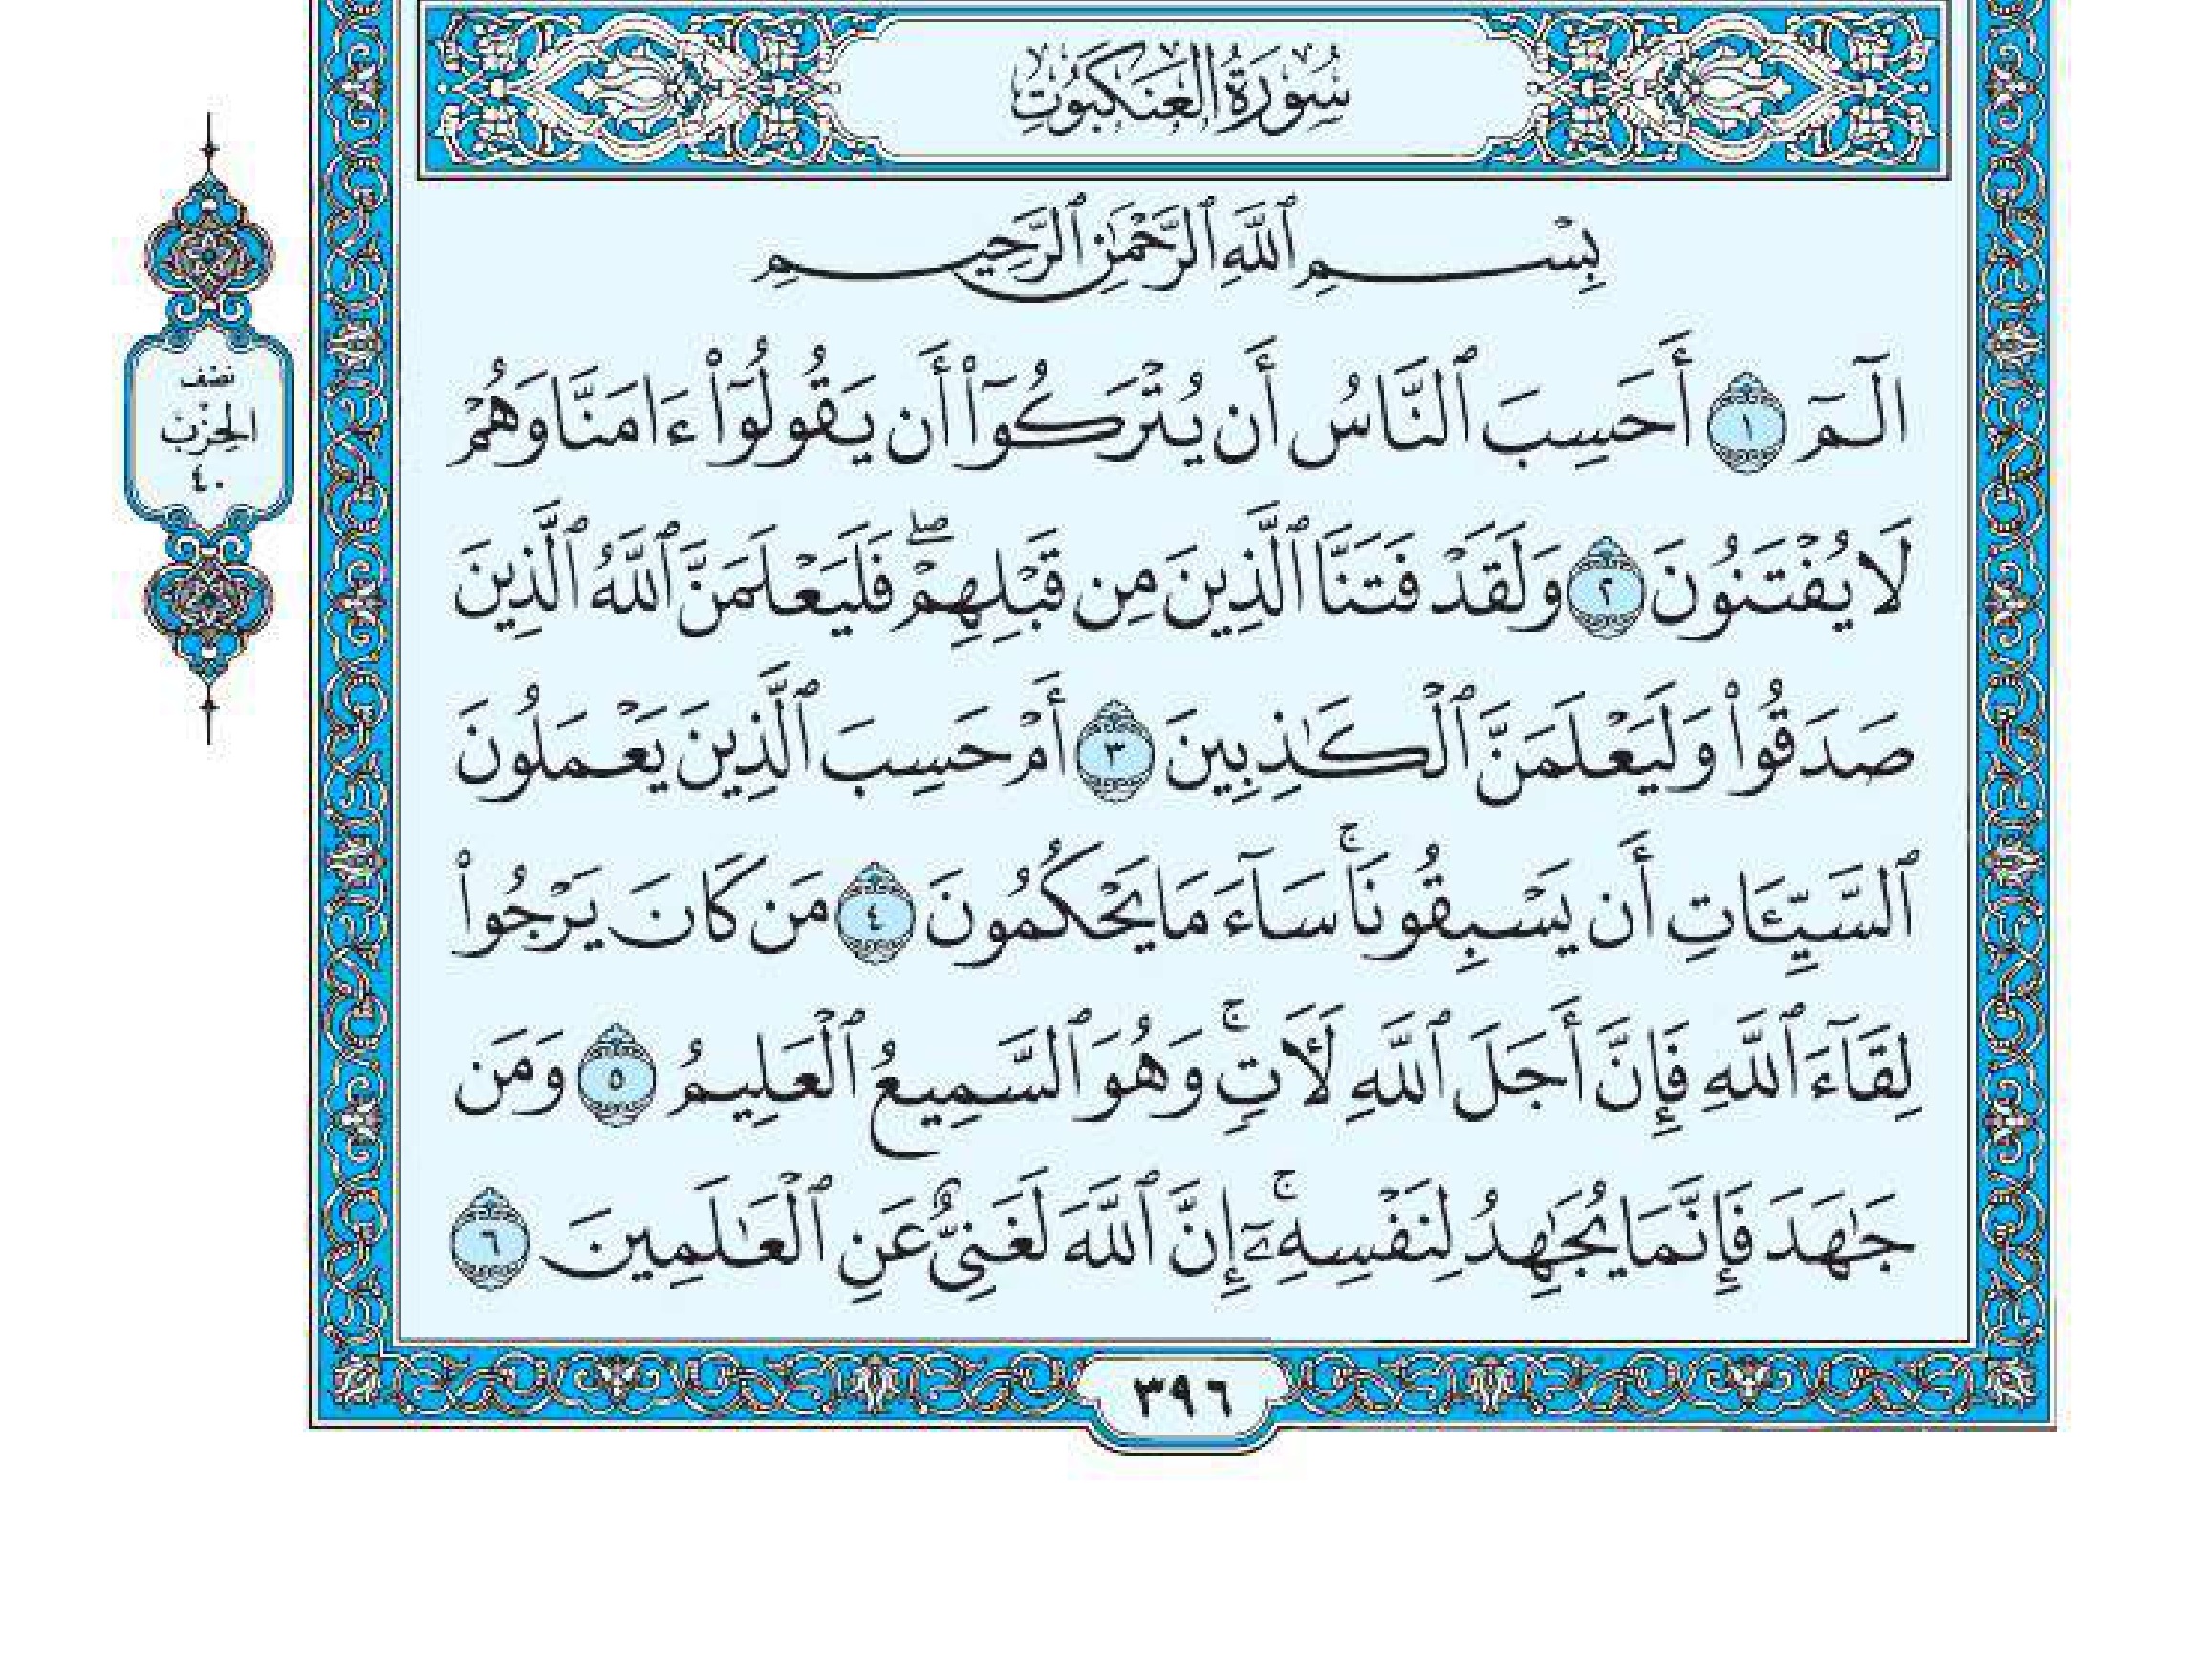 سُورَةُ العَنكَبُوتِ
بِسْمِ ٱللَّهِ ٱلرَّحْمَٰنِ ٱلرَّحِيمِ
الٓمٓ ١ أَحَسِبَ ٱلنَّاسُ أَن يُتْرَكُوٓا۟ أَن يَقُولُوٓا۟ ءَامَنَّا وَهُمْ
لَا يُفْتَنُونَ ٢ وَلَقَدْ فَتَنَّا ٱلَّذِينَ مِن قَبْلِهِمْ ۖ فَلَيَعْلَمَنَّ ٱللَّهُ ٱلَّذِينَ
صَدَقُوا۟ وَلَيَعْلَمَنَّ ٱلْكَٰذِبِينَ ٣ أَمْ حَسِبَ ٱلَّذِينَ يَعْمَلُونَ
ٱلسَّيِّـَٔاتِ أَن يَسْبِقُونَا ۚ سَآءَ مَا يَحْكُمُونَ ٤ مَن كَانَ يَرْجُوا۟
لِقَآءَ ٱللَّهِ فَإِنَّ أَجَلَ ٱللَّهِ لَـَٔاتٍ ۚ وَهُوَ ٱلسَّمِيعُ ٱلْعَلِيمُ ٥ وَمَن
جَٰهَدَ فَإِنَّمَا يُجَٰهِدُ لِنَفْسِهِۦٓ ۚ إِنَّ ٱللَّهَ لَغَنِىٌّ عَنِ ٱلْعَٰلَمِينَ ٦
نصف
الحِزْب
٤٠
٣٩٦